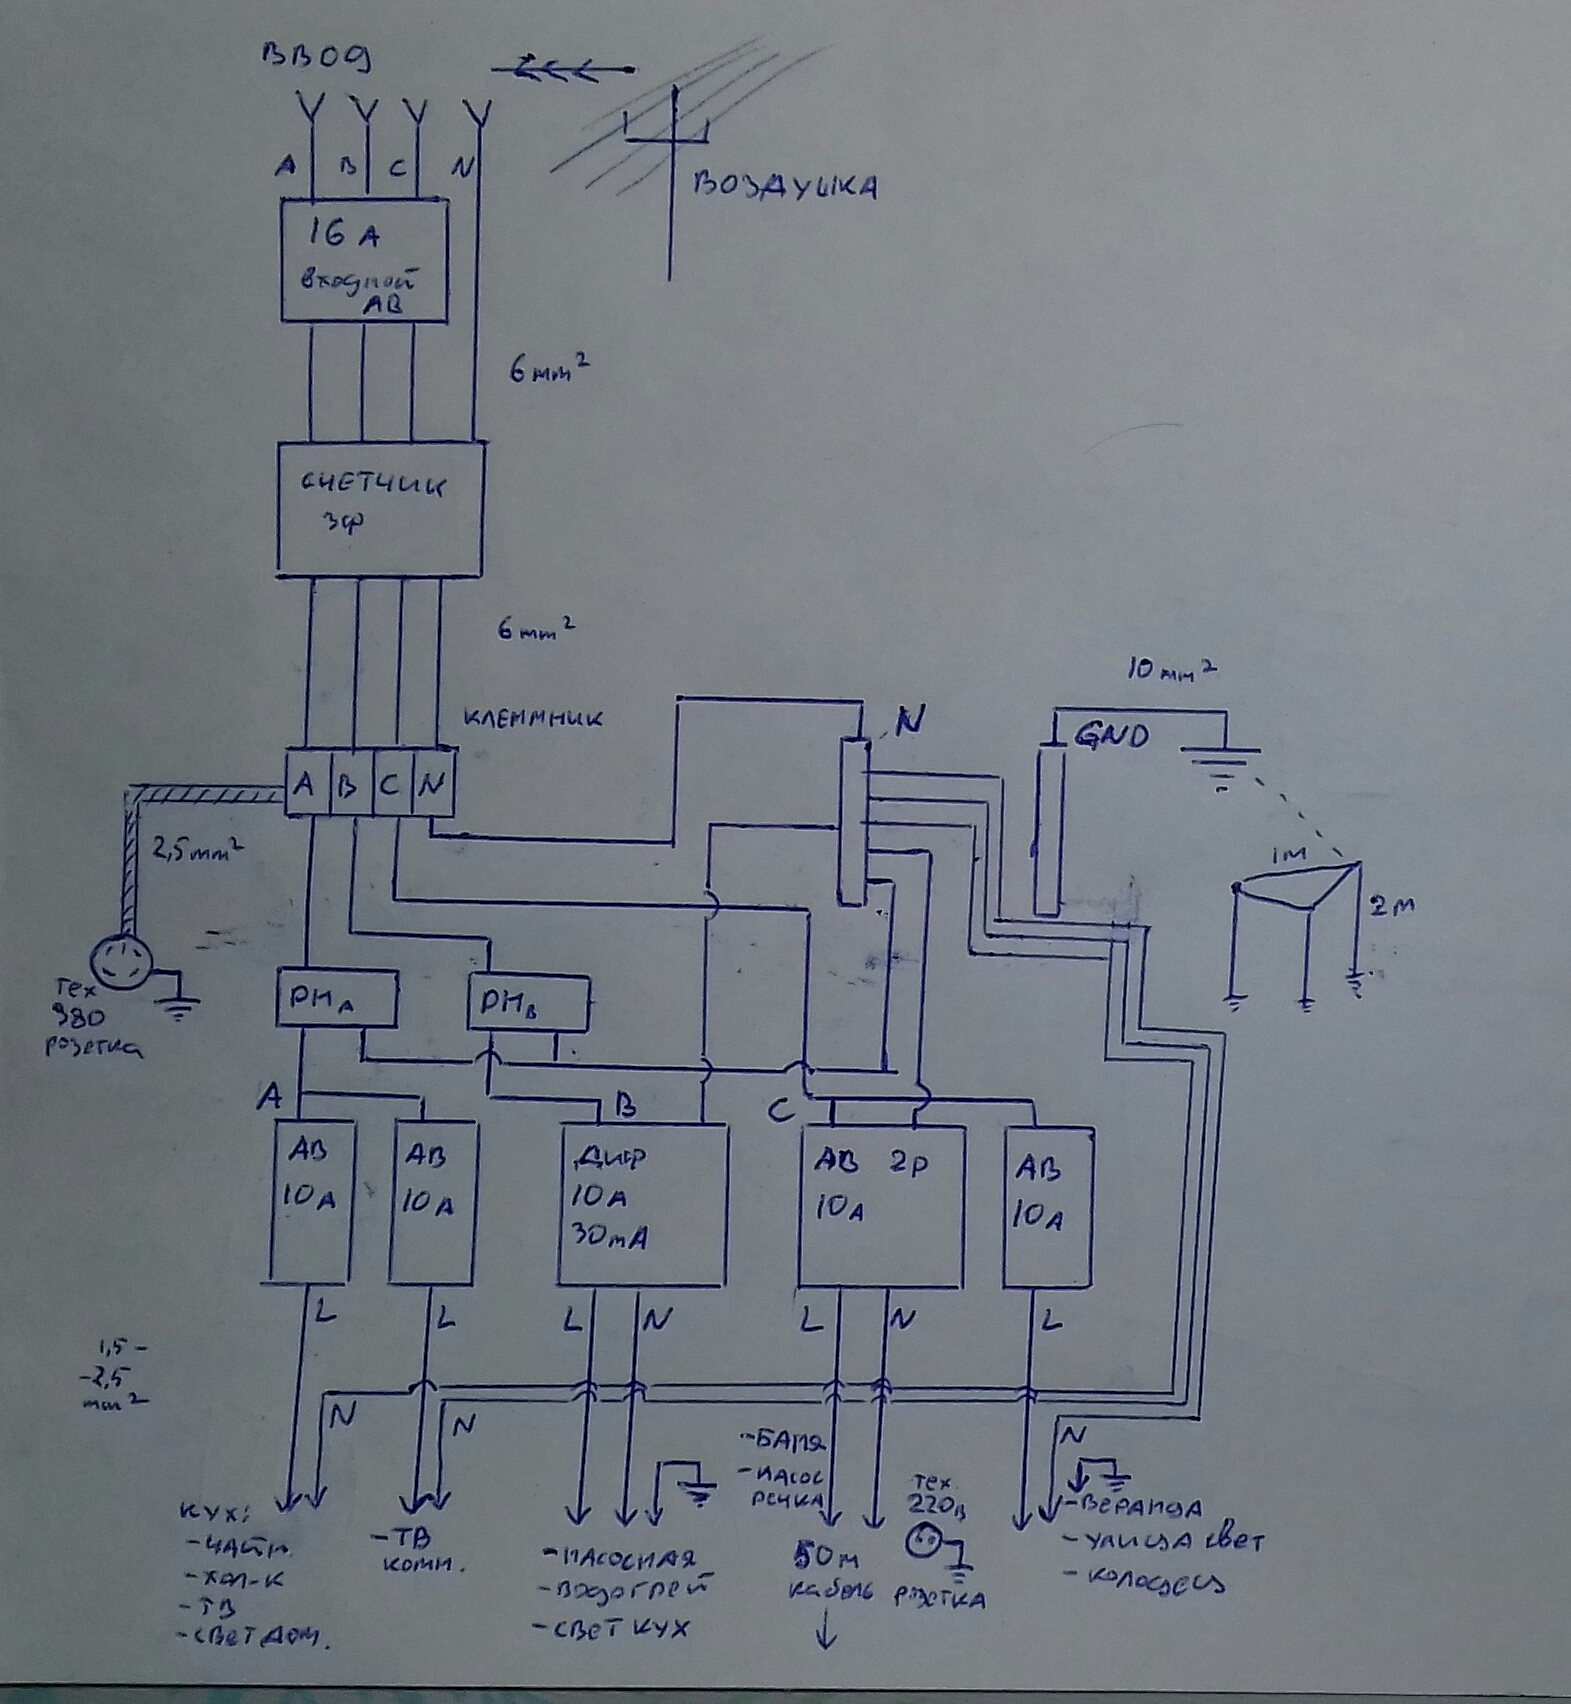 ВВОД
A B C N
ВОЗДУШКА
16 А
входной
АВ
6 mm²
СЧЕТЧИК
3ф
6 mm²
КЛЕММНИК
10 mm²
N
GND
A B C N
2,5 mm²
1м
2м
РН A
РН B
тех
380
розетка
A
B
C
АВ
10А
АВ
10А
Диф
10А
30mA
АВ 2P
10А
АВ
10А
L
L
L N
L N
L
1,5 -
-2,5
mm²
N
N
N
-БАНЯ
-НАСОС
РЕЧКА
тех.
220в
розетка
КУХ:
-ХОЛ-К
-ТВ
-СВЕТ ДОМ.
-ТВ
комн.
-НАСОСНАЯ
-ВОДОГРЕЙ
-СВЕТ КУХ
50м
кабель
-ВЕРАНДА
-УЛИЦА СВЕТ
-КОЛОДЕЦ